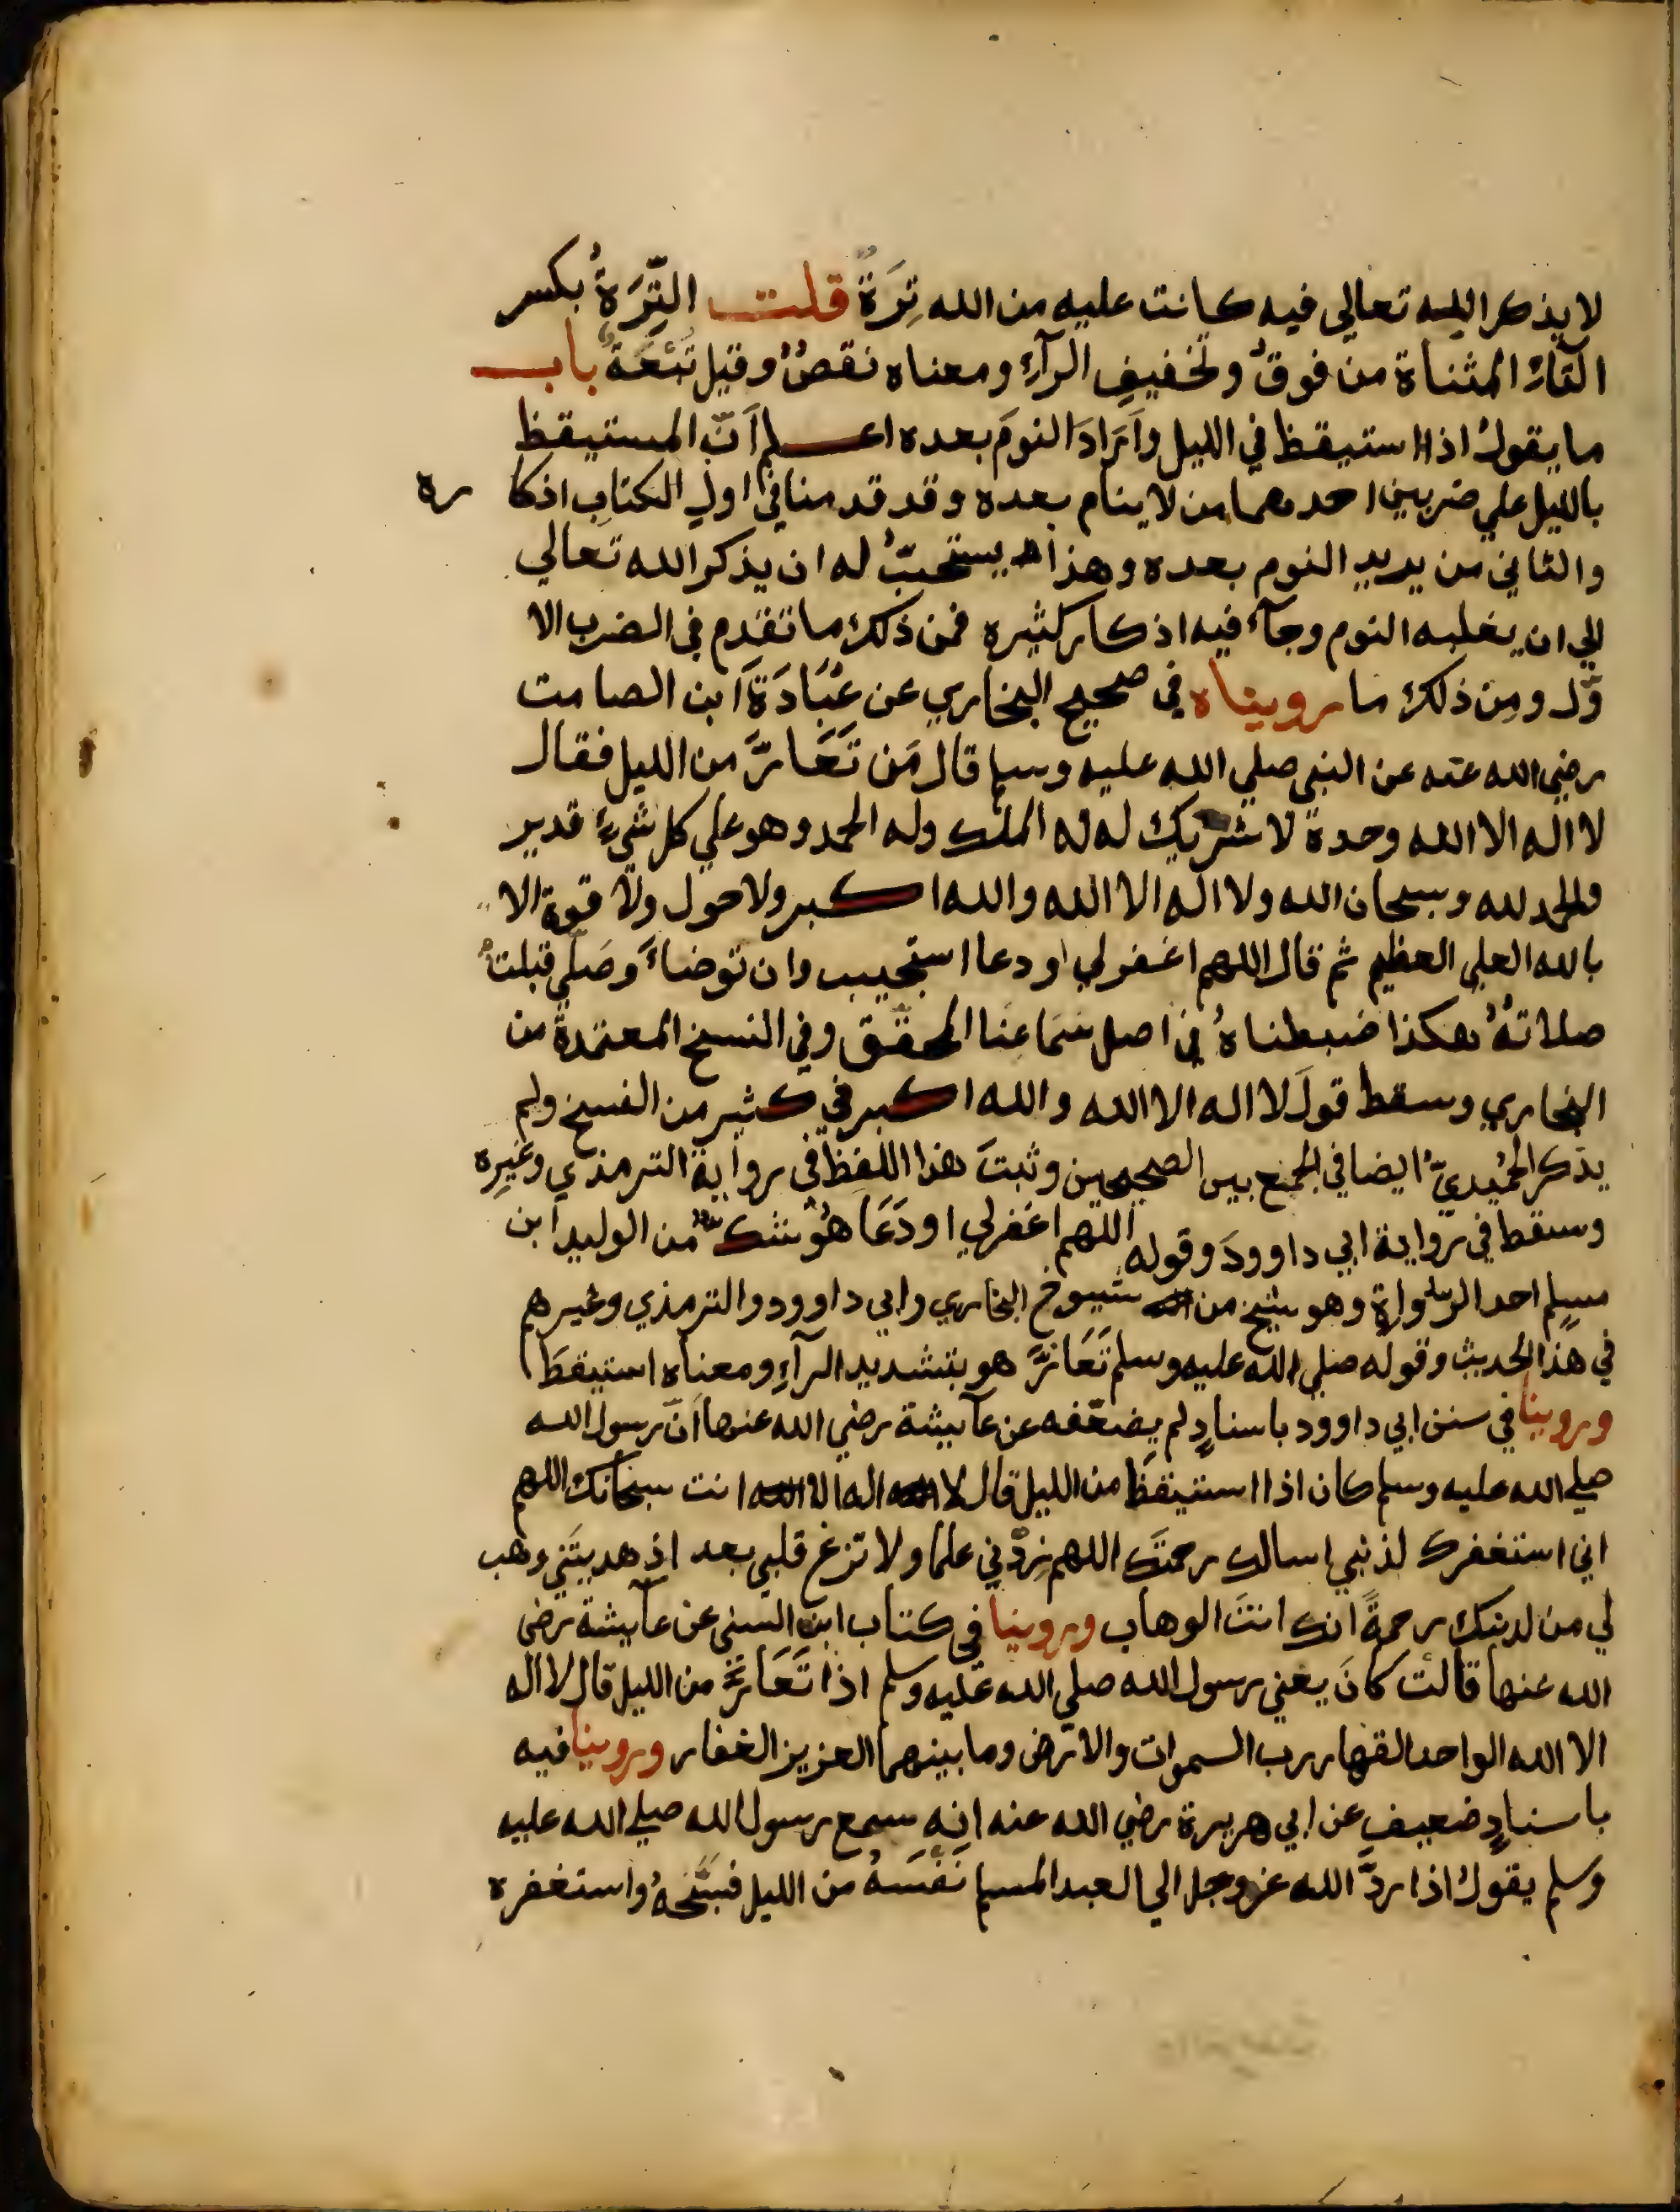 لا يذكر الله تعالي فيه كانت عليه من الله تِرَةٌ قلت التِّرَةُ بكسر
التآءِ المثناة من فوقُ وتخفيفِ الرآءِ ومعناه نقصٌ وقيل تَبِعَةٌ باب
ما يقولُ اذا استيقظ في الليل واَرَادَ النومَ بعده اعلم اَنّ المستيقظ
بالليل علي ضربين احدهما من لا ينام بعده وقد قدمنا في اول الكتابِ اذكاره
والثاني من يريد النوم بعده وهذا يستحبّ له ان يذكر الله تعالي
الي ان يغلبه النوم وجآء فيه اذكار كثيره فمن ذلك ما تقدم في الضرب الا
وّل ومِن ذلك ما رويناه في صحيح البخاري عن عُبَادَةَ ابن الصامت
رضي الله عنه عن النبي صلي الله عليه وسلم قال مَن تَعَارَّ من الليل فقال
لا اله الا الله وحدة لا شريك له له الملك وله الحمد وهو علي كل شيءٍ قدير
والحمد لله وسبحان الله ولا اله الا الله والله اكبر ولا حول ولا قوة الا
بالله العلي العظيم ثم قال اللهم اغفر لي او دعا استجيب وان توضاءَ وصَلّي قبلتْ
صلاتهُ هكذا ضبطناهُ في اصل سَمَاعنا المحقق وفي النسخ المعتمدة من
البخاري وسقط قولَ لا اله الا الله والله اكبر في كثير من النسخ ولم
يذكر الحُمَيديّ ايضا في الجمع بين الصحيحين وثبتَ هذا اللفظ في رواية الترمذي وغيرِه
وسقط في رواية ابي داوودَ وقوله اللهم اغفر لي او دَعَا هُو شك من الوليد ابن
مسلِم احد الرُواة وهو شيخ من شيوخ البخاري وابي داوود والترمذي وغيرهم
في هذا الحديث وقوله صلي الله عليه وسلم تَعَارَّ هو بتشديد الرآءِ ومعناه استيقظَ
وروينا في سنن ابي داوود باسنادٍ لم يضعّفه عن عآيشة رضي الله عنها اَنّ رسول الله
صلي الله عليه وسلم كان اذا استيقظَ من الليل قال لا اله الا انت سبحانك اللهم
اني استغفرك لذنبي اسالك رحمتَك اللهم زِدْني علما ولا تزغ قلبي بعد اذ هديتَني وهب
لي من لدنك رحمةً انك انتَ الوهاب وروينا في كتاب ابن السني عن عآيشة رضي
الله عنها قالت كانَ يعني رسول الله صلي الله عليه وسلم اذا تَعَارَّ من الليل قال لا اله
الا الله الواحد القهار رب السموات والارض وما بينهما العزيز الغفار وروينا فيه
باسنادٍ ضعيفٍ عن ابي هريرة رضي الله عنه انه سمع رسول الله صلي الله عليه
وسلم يقولُ اذا ردَّ الله عز وجل الي العبد المسلم نَفْسَهُ من الليل فسَبّحَهُ واستغفره